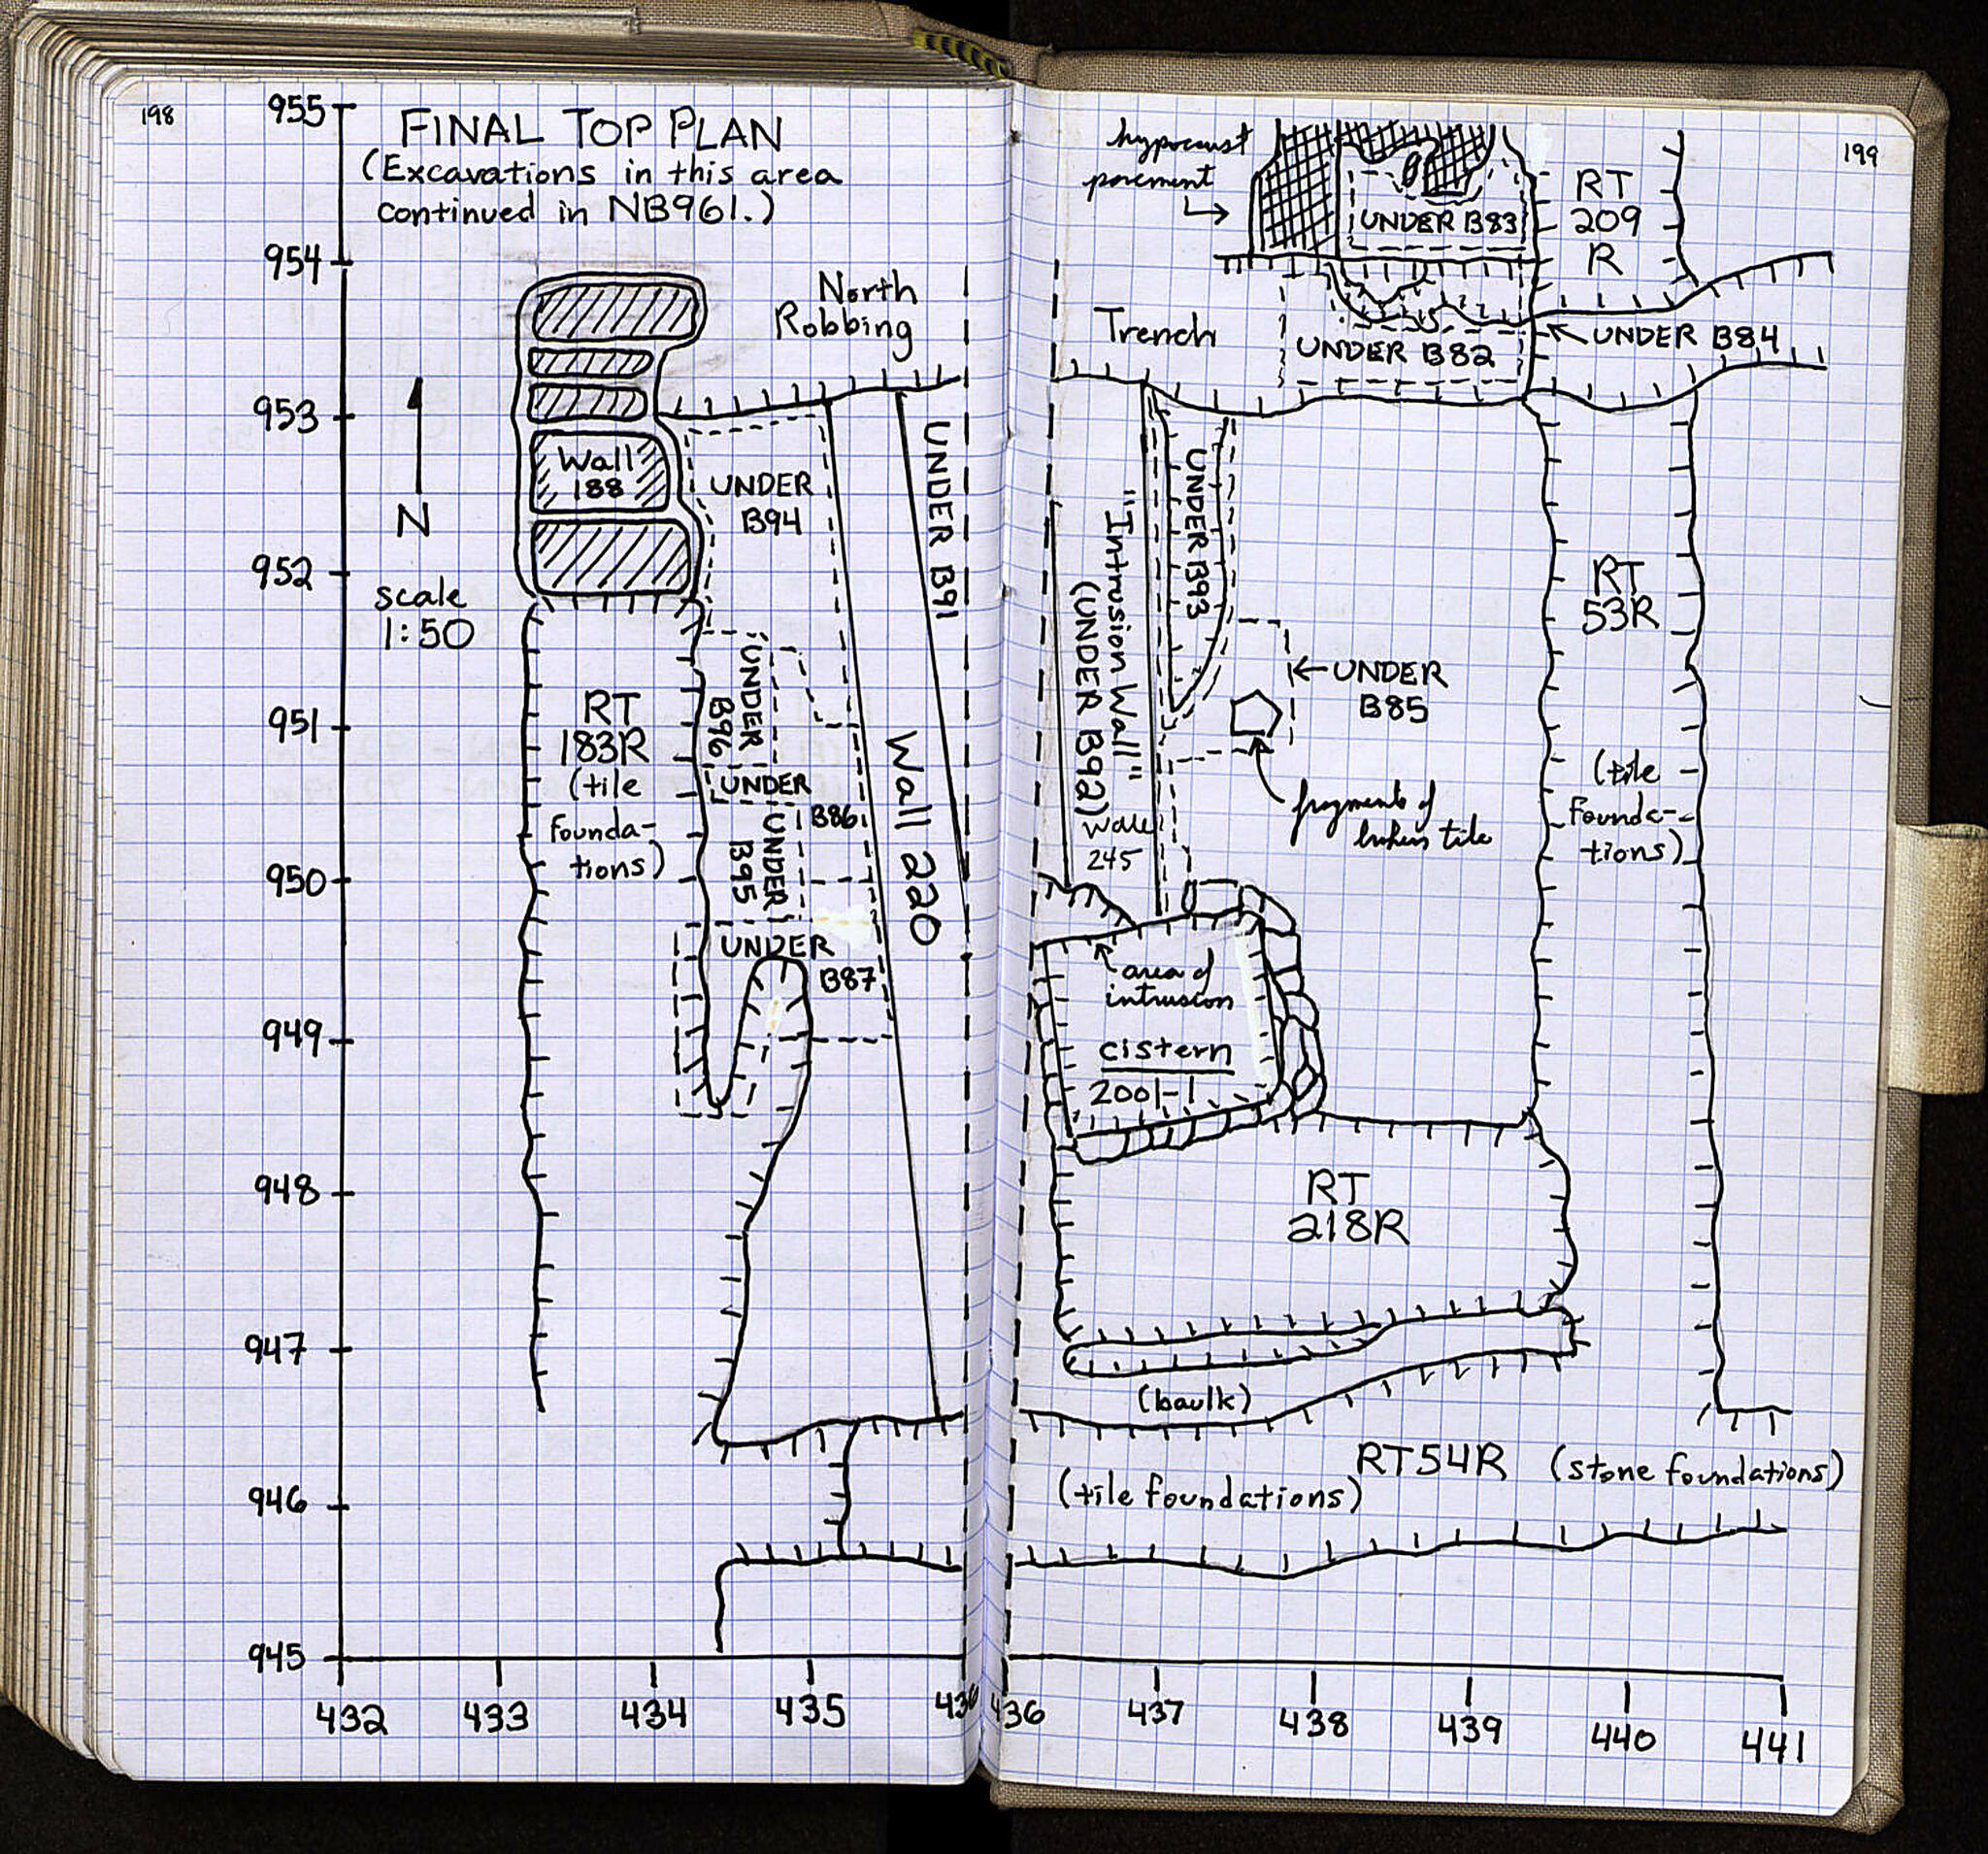 198
FINAL TOP PLAN
(Excavations in this area
continued in NB961.)
955
954
953
952
951
950
949
948
947
946
945
N
scale
1:50
North
Robbing
Wall
188
UNDER
B94
UNDER B91
RT
183R
(tile
founda-
tions)
UNDER
B96
UNDER
B86
UNDER
B95
UNDER
B87
Wall 220
432
433
434
435
436
199
hypocaust
pavement
UNDER B83
RT
209
R
Trench
UNDER B82
UNDER B84
UNDER B93
"Intrusion Wall"
(UNDER B92)
Wall
245
UNDER
B85
fragments of
broken tile
RT
53R
(tile
founda-
tions)
area of
intrusion
cistern
2001-1
RT
218R
(baulk)
RT54R (stone foundations)
(tile foundations)
436
437
438
439
440
441